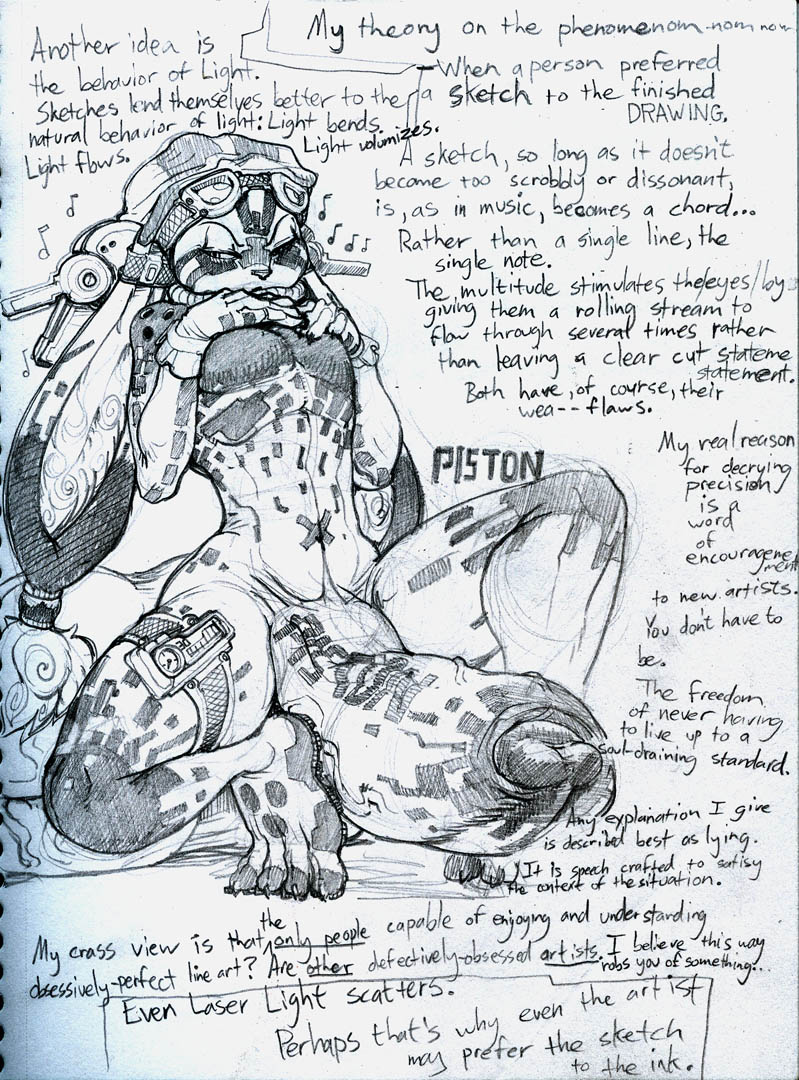 My theory on the phenomenom-nom nom
When a person preferred
a sketch to the finished
DRAWING.
Another idea is
the behavior of Light.
Sketches lend themselves better to the
natural behavior of light: Light bends.
Light flows.
Light volumizes.
A sketch, so long as it doesn't
become too scrobbly or dissonant,
is, as in music, becomes a chord...
Rather than a single line, the
single note.
The multitude stimulates the/eyes/by
giving them a rolling stream to
flow through several times rather
than leaving a clear cut stateme
statement.
Both have, of course, their
wea-- flaws.
PISTON
My real reason
for decrying
precision
is a
word
of
encouragement
to new artists.
You don't have to
be.
The freedom
of never having
to live up to a
soul-draining standard.
Any explanation I give
is described best as lying.
It is speech crafted to satisy
the context of the situation.
My crass view is that the only people capable of enjoying and understanding
obsessively-perfect line art? Are other defectively-obsessed artists. I believe this way
robs you of something...
Even Laser Light scatters.
Perhaps that's why even the artist
may prefer the sketch
to the ink.